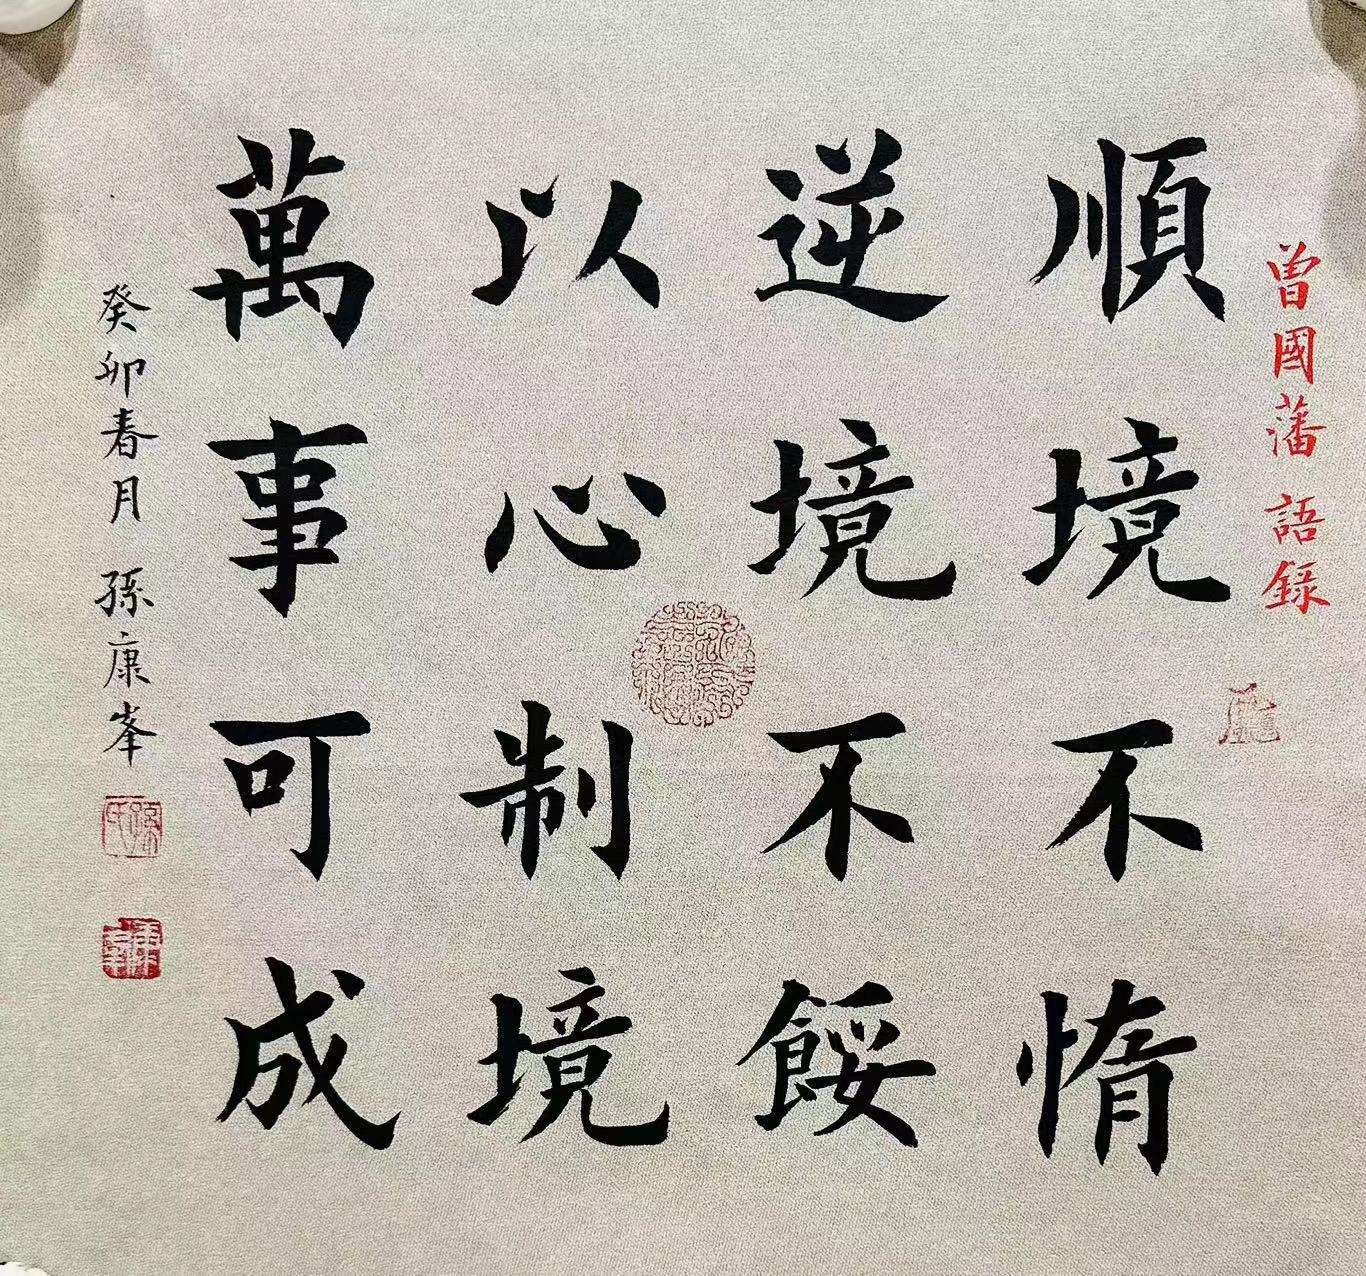 曾國藩 語錄
順境不惰
逆境不餒
以心制境
萬事可成
癸卯春月 孫康峯
孫氏